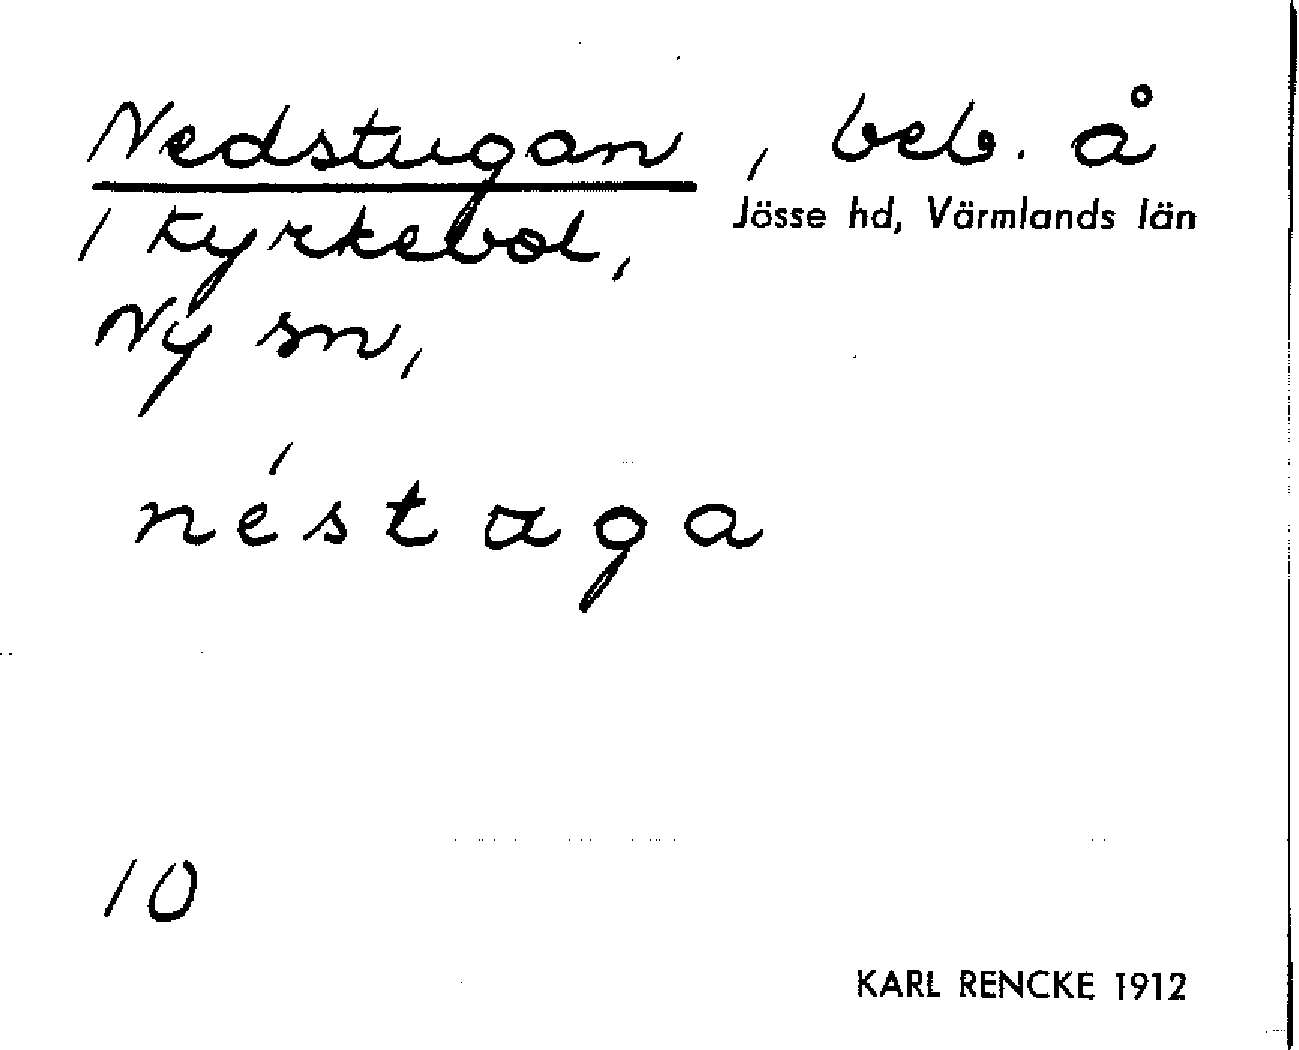 Nedstugan, beb. å
1 Kyrkebol, Jösse hd, Värmlands län
Ny sn,
néstaga
10
KARL RENCKE 1912